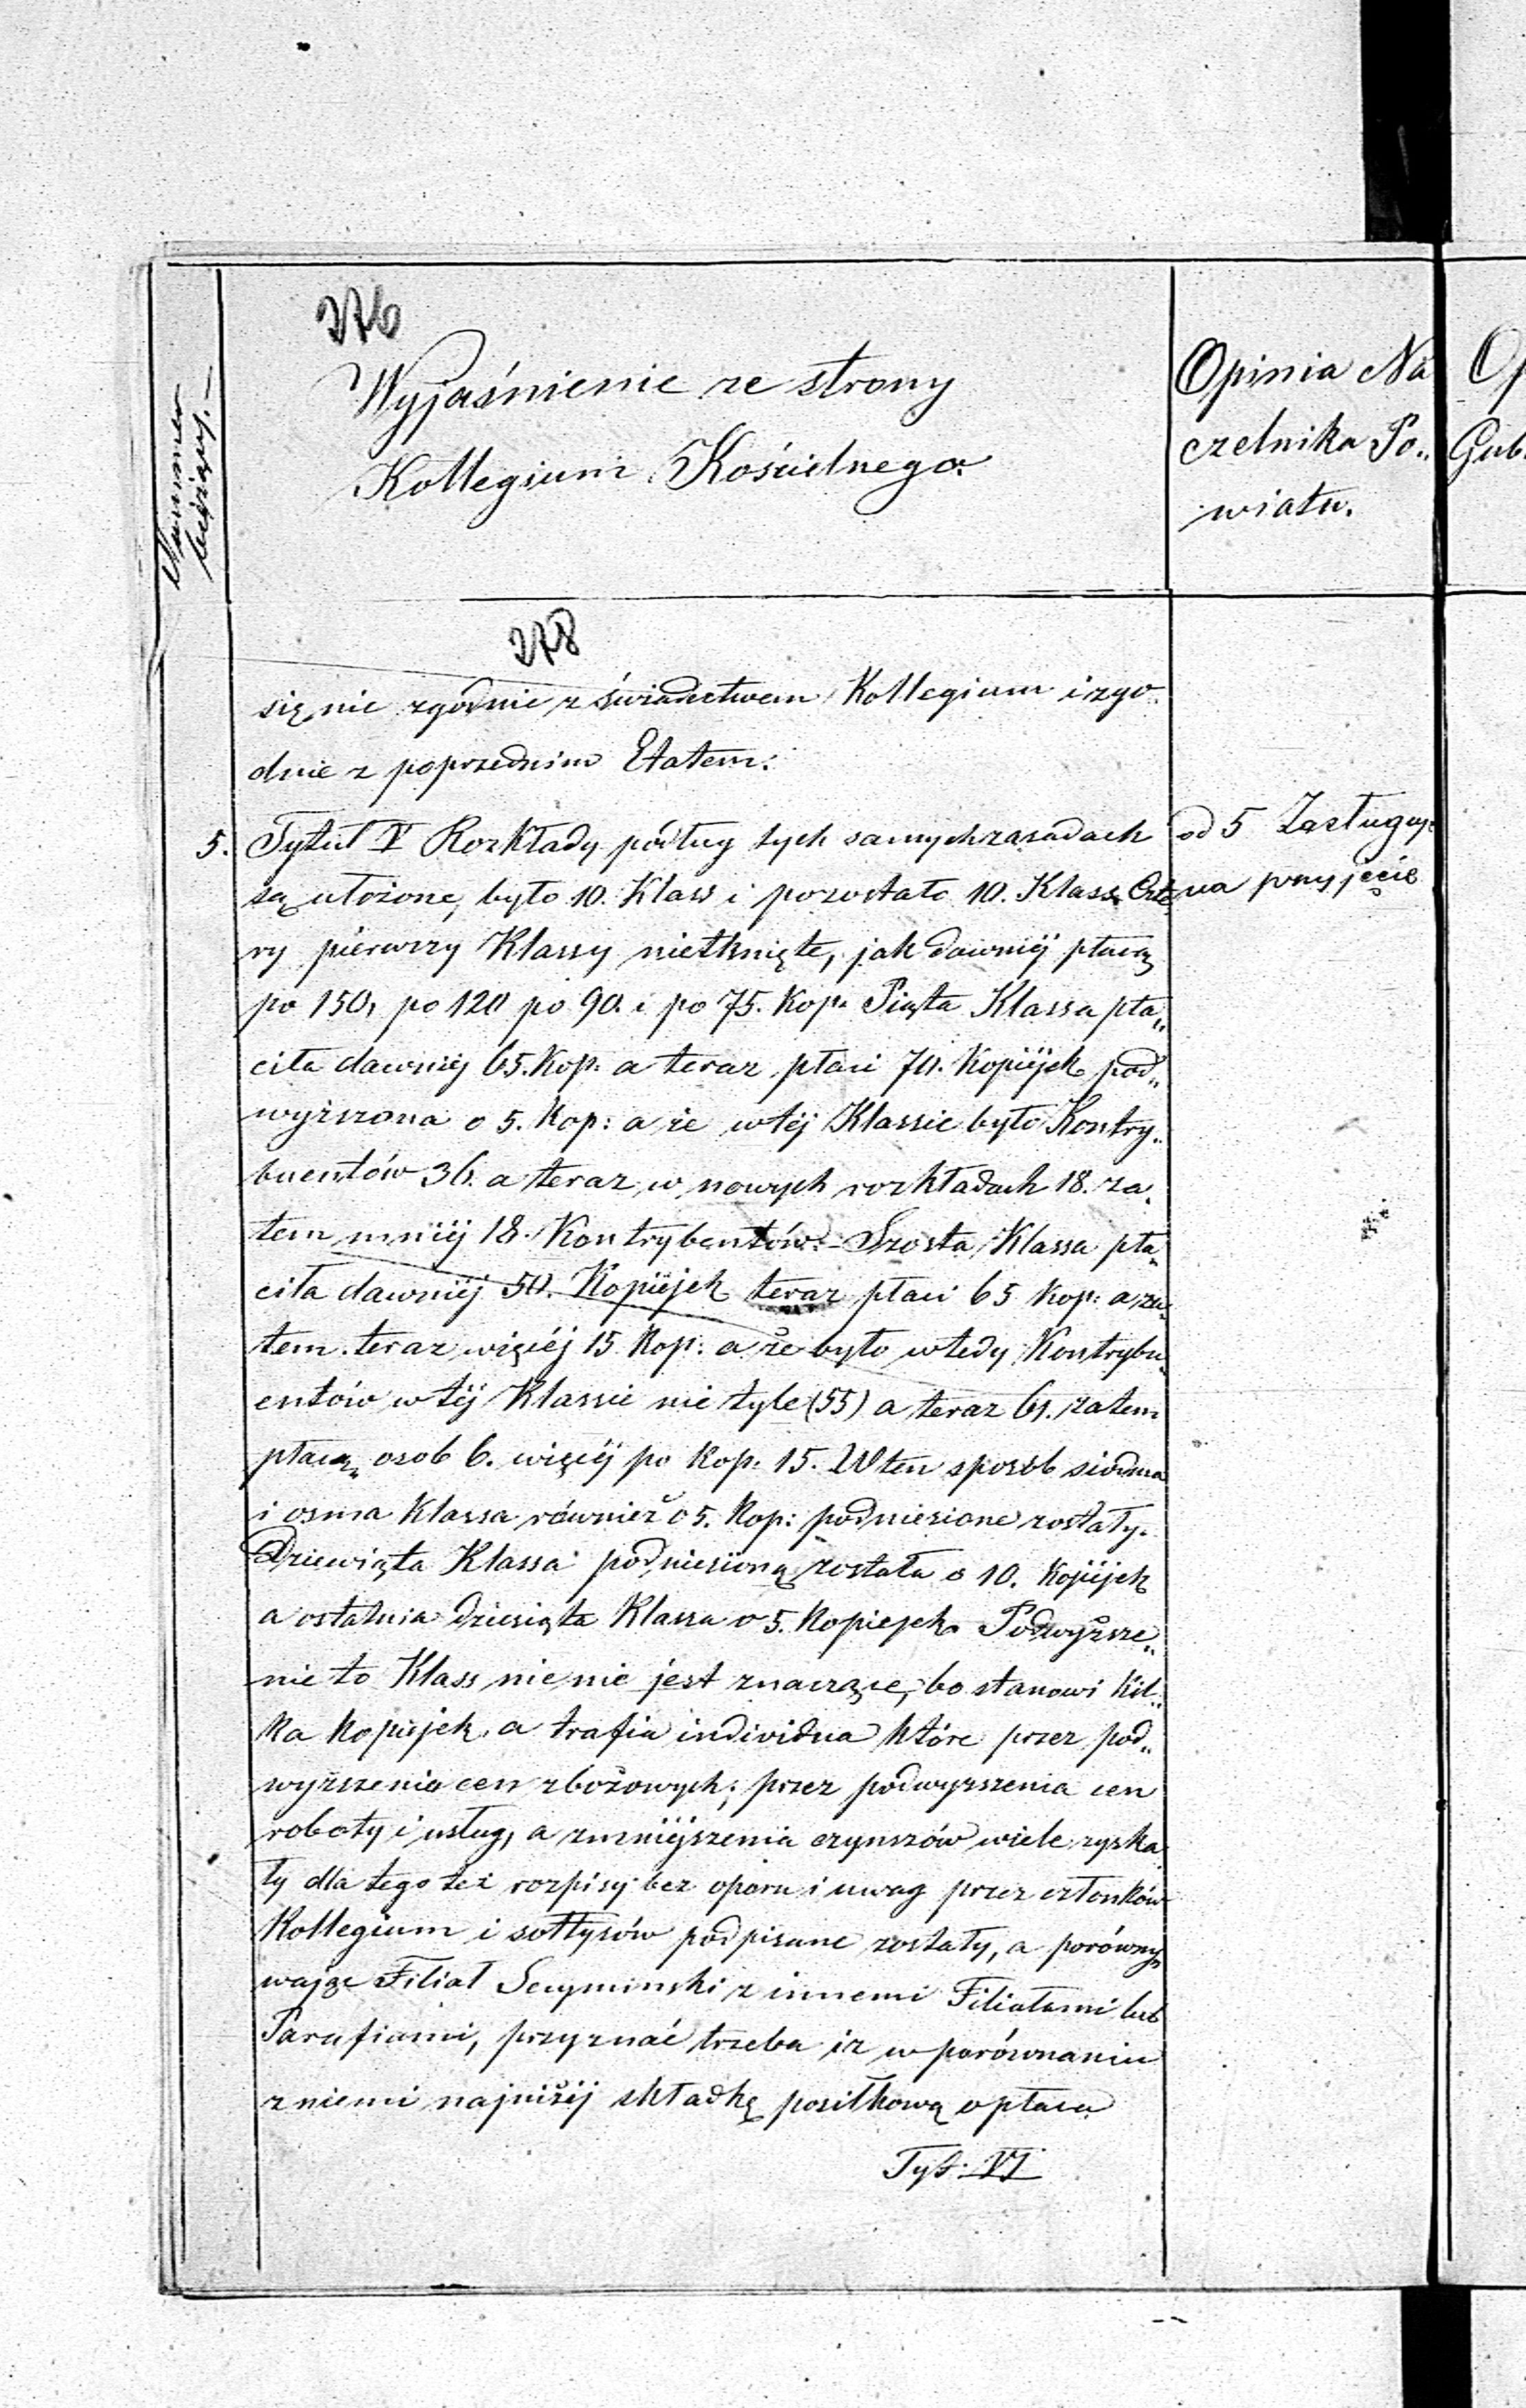 276
Wyjaśnienie ze strony
Kollegium Kościelnego
Opinia Na
czelnika Po„
wiatu.
Op
Gub.
Nummer
bieżący. —
278
się nie zgodnie z świadectwem Kollegium i zgo
dnie z poprzednim Etatem.
5. Tytuł V Rozkłady podług tych samych zasadach
są ułożone, było 10. Klass i pozostało 10. Klass. Czte
ry pierwszy Klassy nietknięte, jak dawniéj płacą
po 150, po 120 po 90. i po 75. Kop. Piąta Klassa pła„
ciła dawniéj 65. Kop. a teraz płaci 70. Kopiéjek pod„
wyższona o 5. Kop: a że w téj Klassie było Kontry„
buentów 36. a teraz w nowych rozkładach 18. za„
tem mniéj 18. Kontrybentów. – Szosta Klassa pła„
ciła dawniéj 50. Kopiéjek teraz płaci 65 Kop: a za„
tem teraz więcéj 15 Kop: a że było wtedy Kontrybu„
entów w téj Klassie nie tyle (55) a teraz 61. zatem
płacą osob 6. więcéj po Kop. 15. W ten sposób siodma
i osma Klassa również o 5. Kop: podniesione zostały.
Dziewiąta Klassa podniesioną została o 10. Kopiéjek
a ostatnia dziesiąta Klassa o 5. Kopiejek. Podwyższe„
nie to Klass nie nie jest znaczące, bo stanowi kil„
ka Kopiejek, a trafia individua które przez pod„
wyższenia cen zbożowych, przez podwyzszenia cen
roboty i usług, a zmniéjszenia czynszów wiele zyska
ły dla tego też rozpisy bez oporu i uwag przez członków
Kollegium i sołtysów podpisane zostały, a porówny„
wając Filiał Secyminski z innemi Filiałami lub
Parafiami, przyznać trzeba iz w porównaniu
z niemi najniżéj składkę posiłkową opłaca
Tyt. VI
ad 5 Zasługuje
na przyjęcie